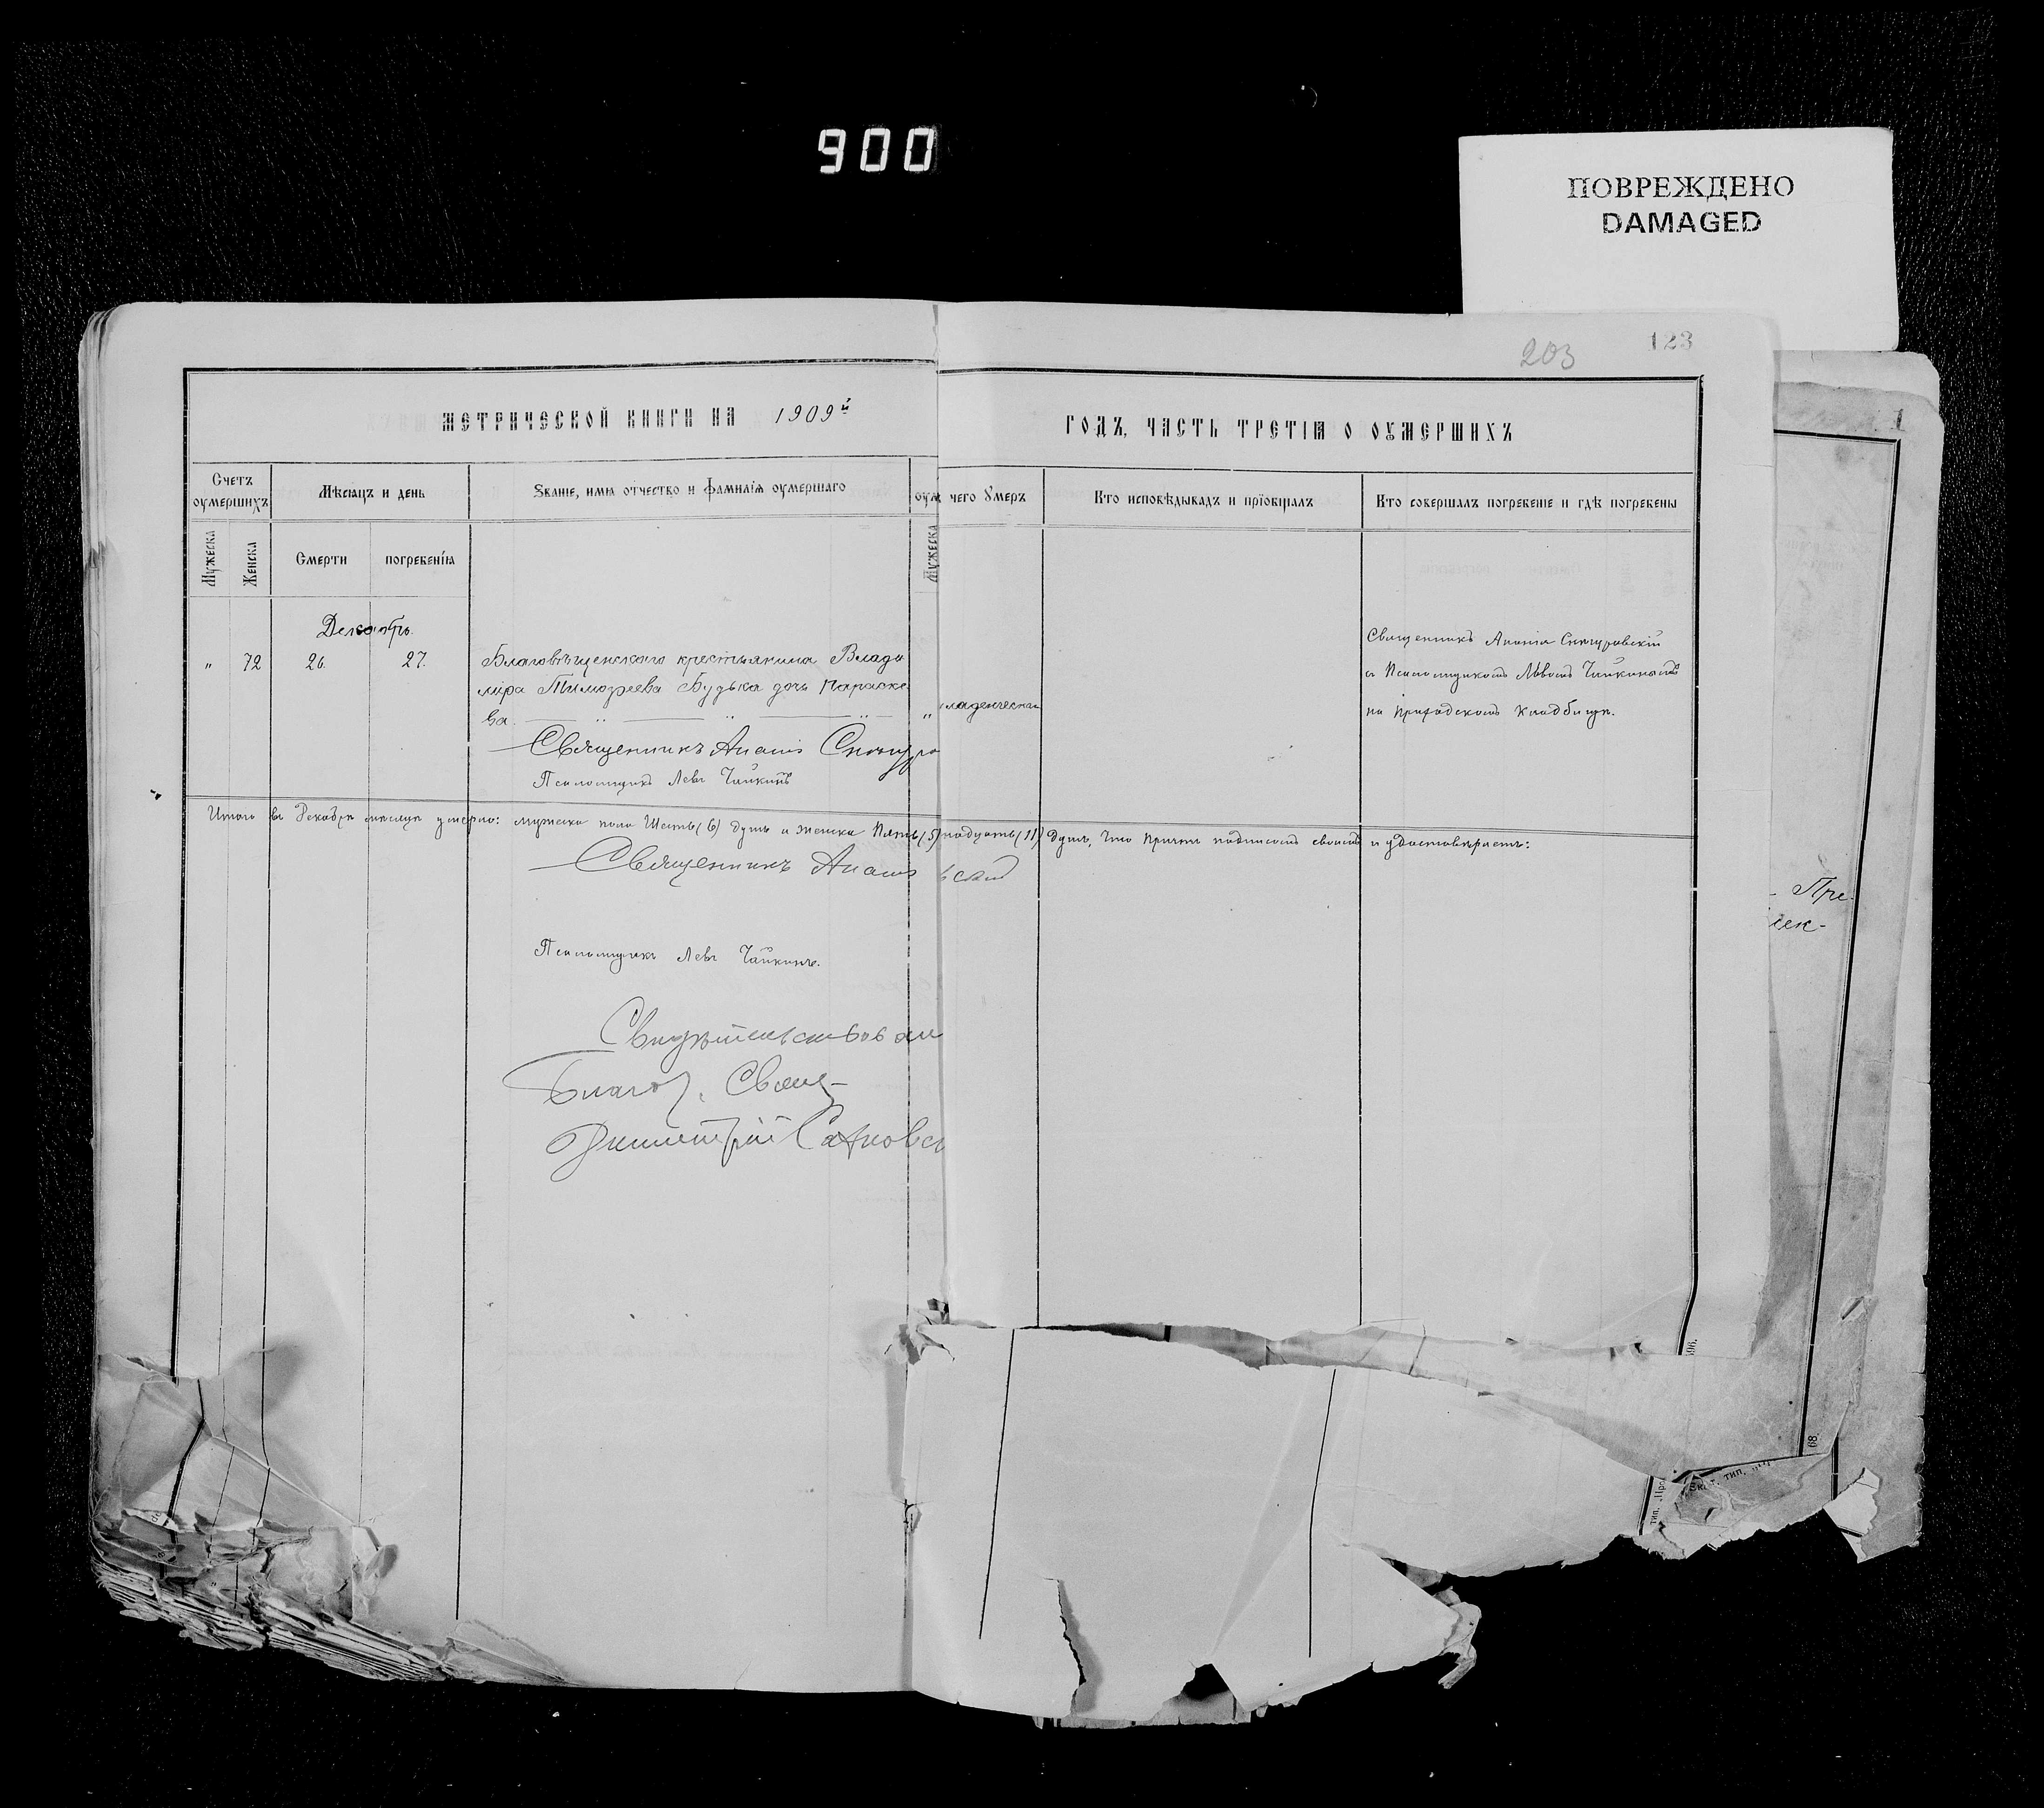 900
ПОВРЕЖДЕНО
DAMAGED
203
123
1
МЕТРИЧЕСКОЙ КНИГИ НА 1909й
ГОДЪ, ЧАСТЬ ТРЕТІЯ О ОУМЕРШИХЪ
Счетъ оумершихъ
Мѣсяцъ и день
Званіе, имя отчество и фамилія оумершаго
оум
чего Умеръ
Кто исповѣдывалъ и пріобщалъ
Кто совершалъ погребеніе и гдѣ погребены
Мужеска
Женска
Смерти
погребенія
Мужеска
Декабрь.
„ 72 26. 27.
Благовѣщенскаго крестьянина Влади
міра Тимофеева Будька дочь Параске
ва.
„ ладенческая
Священникъ Ананія
съ Псаломщикомъ Львомъ Чайкинымъ
на Приходскомъ кладбищѣ.
Священникъ Ананія
Псаломщикъ Левъ Чайкинъ
Итого въ Декабрѣ мѣсяцѣ умерло: мужеска пола Шесть (6) душъ и женска Пять (5) надцать (11) душъ, что Причтъ подписомъ своимъ и удостовѣряетъ:
Священникъ Ананія вскій
Псаломщикъ Левъ Чайкинъ.
Свидѣтельствовал
Благоч. Свящ-
Димитрій
- Пре-
сек-
96.
68
тип. „Про
Екат. тип.